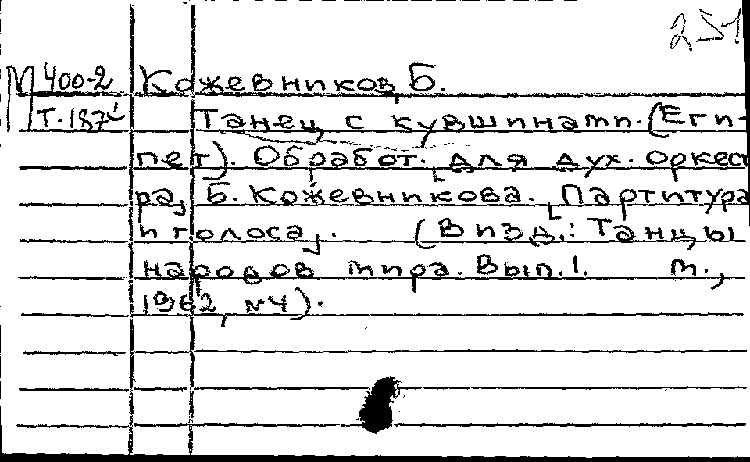 251
М 400-2 Кожевников, Б.
Т-187 Танец с кувшинами. (Еги-
пет). Обработ. для дух. оркест
ра, Б. Кожевникова. Партитура
и голоса. (В изд.: Танцы
народов мира. Вып. 1. М.,
1962, №4).